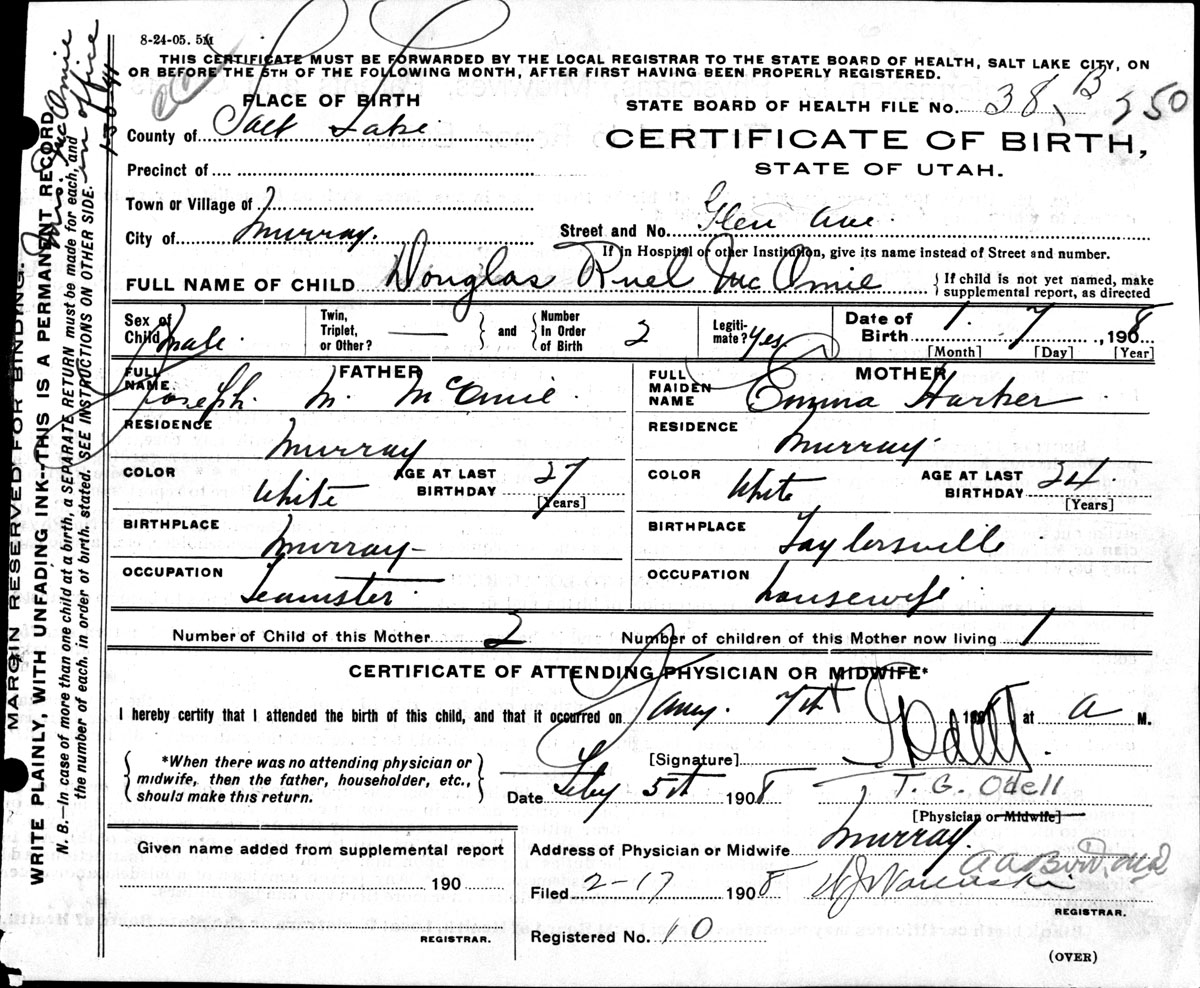 8-24-05. 5M
THIS CERTIFICATE MUST BE FORWARDED BY THE LOCAL REGISTRAR TO THE STATE BOARD OF HEALTH, SALT LAKE CITY, ON
OR BEFORE THE 5TH OF THE FOLLOWING MONTH, AFTER FIRST HAVING BEEN PROPERLY REGISTERED.
PLACE OF BIRTH
STATE BOARD OF HEALTH FILE No. 38, B 250
County of Salt Lake
CERTIFICATE OF BIRTH,
STATE OF UTAH.
Precinct of
Town or Village of
City of Murray.
Street and No. Glen Ave.
If in Hospital or other Institution, give its name instead of Street and number.
FULL NAME OF CHILD Douglas Ruel McOmie
If child is not yet named, make
supplemental report, as directed
Sex of Child male. Twin, Triplet, or Other? — and Number In Order of Birth 2 Legiti-mate? Yes Date of Birth 1. 7 , 1908
[Month] [Day] [Year]
FATHER
FULL NAME Joseph M. McOmie.
RESIDENCE Murray
COLOR White AGE AT LAST BIRTHDAY 27 [Years]
BIRTHPLACE Murray
OCCUPATION Teamster.
MOTHER
FULL MAIDEN NAME Emma Harker
RESIDENCE Murray
COLOR White AGE AT LAST BIRTHDAY 24 [Years]
BIRTHPLACE Taylorsville
OCCUPATION housewife
Number of Child of this Mother 2 Number of children of this Mother now living 1
CERTIFICATE OF ATTENDING PHYSICIAN OR MIDWIFE*
I hereby certify that I attended the birth of this child, and that it occurred on Jany. 7th 1908 at a M.
*When there was no attending physician or
midwife, then the father, householder, etc.,
should make this return.
[Signature] Odell
Date Feby 5th 1908
T. G. Odell
[Physician or Midwife]
Address of Physician or Midwife Murray.
Given name added from supplemental report
190
REGISTRAR.
Filed 2-17 1908
REGISTRAR.
Registered No. 10
(OVER)
MARGIN RESERVED FOR BINDING.
WRITE PLAINLY, WITH UNFADING INK--THIS IS A PERMANENT RECORD.
N. B.—In case of more than one child at a birth, a SEPARATE RETURN must be made for each, and
the number of each, in order of birth, stated. SEE INSTRUCTIONS ON OTHER SIDE.
Mrs. McOmie
in office